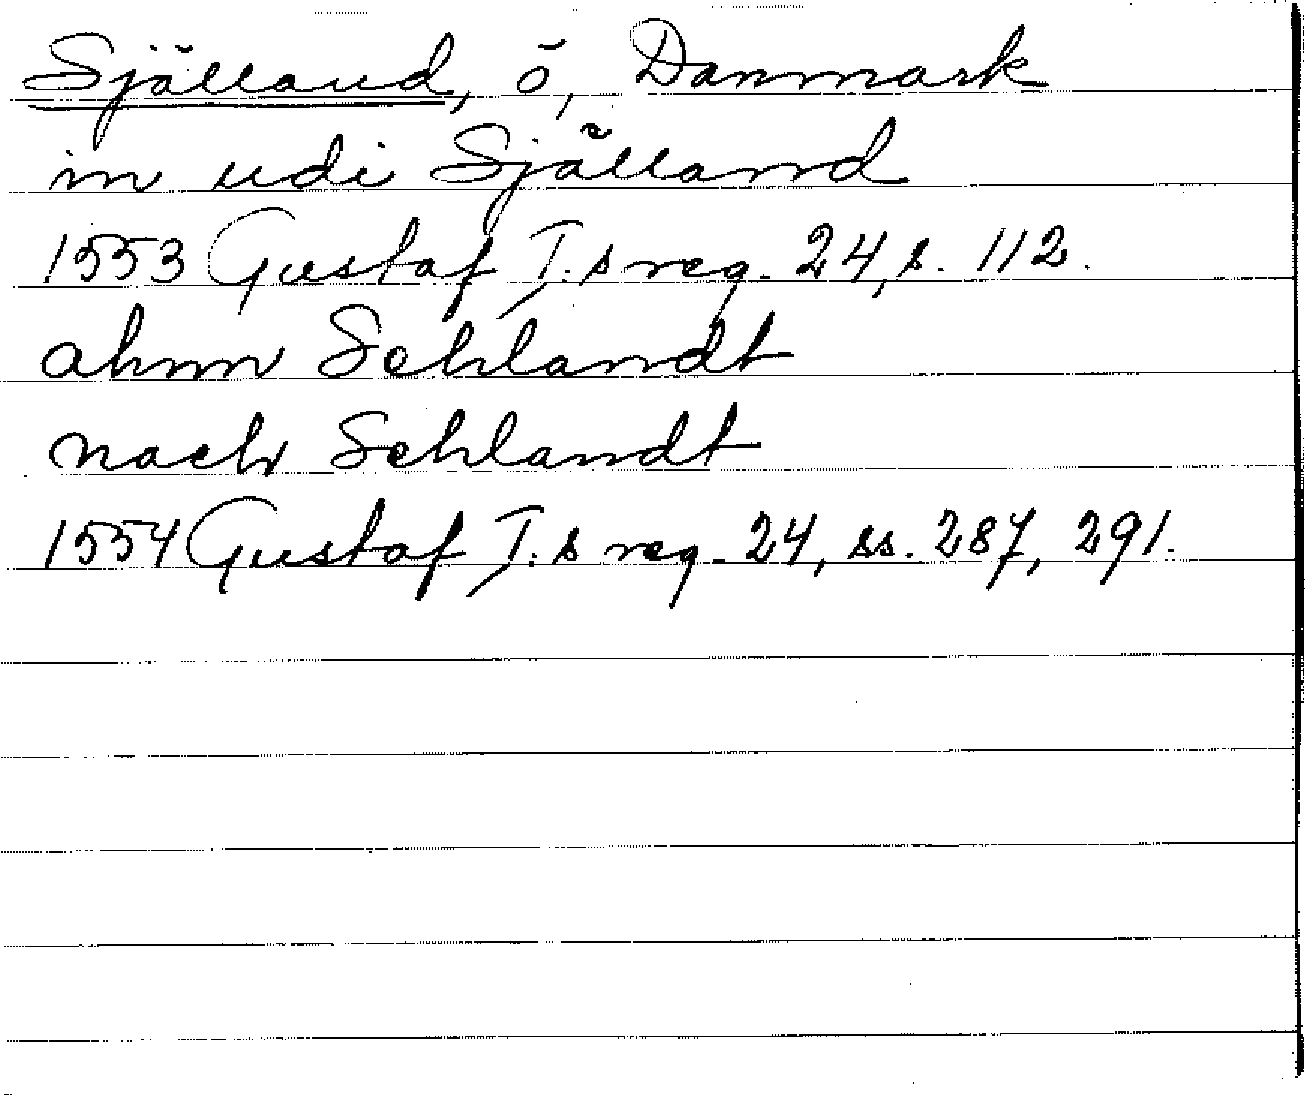 Själland, ö, Danmark
in udi Själland
1553 Gustaf I:s reg. 24, s. 112.
ahnn Sehlandt
nach Sehlandt
1554 Gustaf I:s reg. 24, ss. 287, 291.